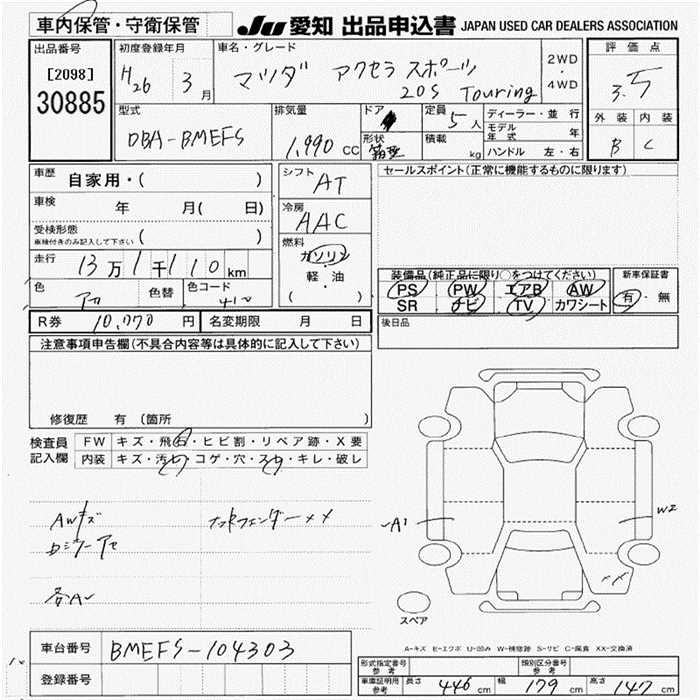 車内保管・守衛保管
JU 愛知 出品申込書 JAPAN USED CAR DEALERS ASSOCIATION
出品番号
[2098]
30885
初度登録年月
H26 3月
車名・グレード
マツダ アクセラスポーツ
20S Touring
2WD
・
4WD
評価点
3.5
外装 内装
B C
型式
DBA-BMEFS
排気量
1,990 cc
ドア
形状
定員
5人
積載
kg
ディーラー・並行
モデル年式 年
ハンドル 左・右
車歴
自家用・( )
車検
年 月( 日)
受検形態
車検付きのみ記入して下さい ( )
走行
13万1千110km
色
アカ
色替
色コード
41V
シフト
AT
冷房
AAC
燃料
ガソリン
・
軽・油
( )
セールスポイント(正常に機能するものに限ります)
装備品(純正品に限り○をつけてください)
PS PW エアB AW
SR ナビ TV カワシート
新車保証書
有・無
後日品
R券 10,770円
名変期限 月 日
注意事項申告欄(不具合内容等は具体的に記入して下さい)
修復歴 有(箇所 )
検査員記入欄
FW キズ・飛石・ヒビ割・リペア跡・X要
内装 キズ・汚れ・コゲ・穴・スレ・キレ・破レ
AWキズ
ナットRフェンダーXX
各A
A1
W2
XX
スペア
A-キズ E-エクボ U-凹み W-補修跡 S-サビ C-腐食 XX-交換済
車台番号
BMEFS-104303
登録番号
形式指定番号
参考
類別区分番号
参考
車庫証明用
参考
長さ 446cm 幅 179cm 高さ 147cm